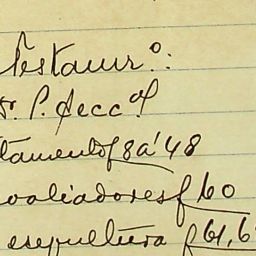 Testaur.º:
P. Secc.ª
tamento f 8 a' 48
valiadores f 60
esepultura f 61, 6